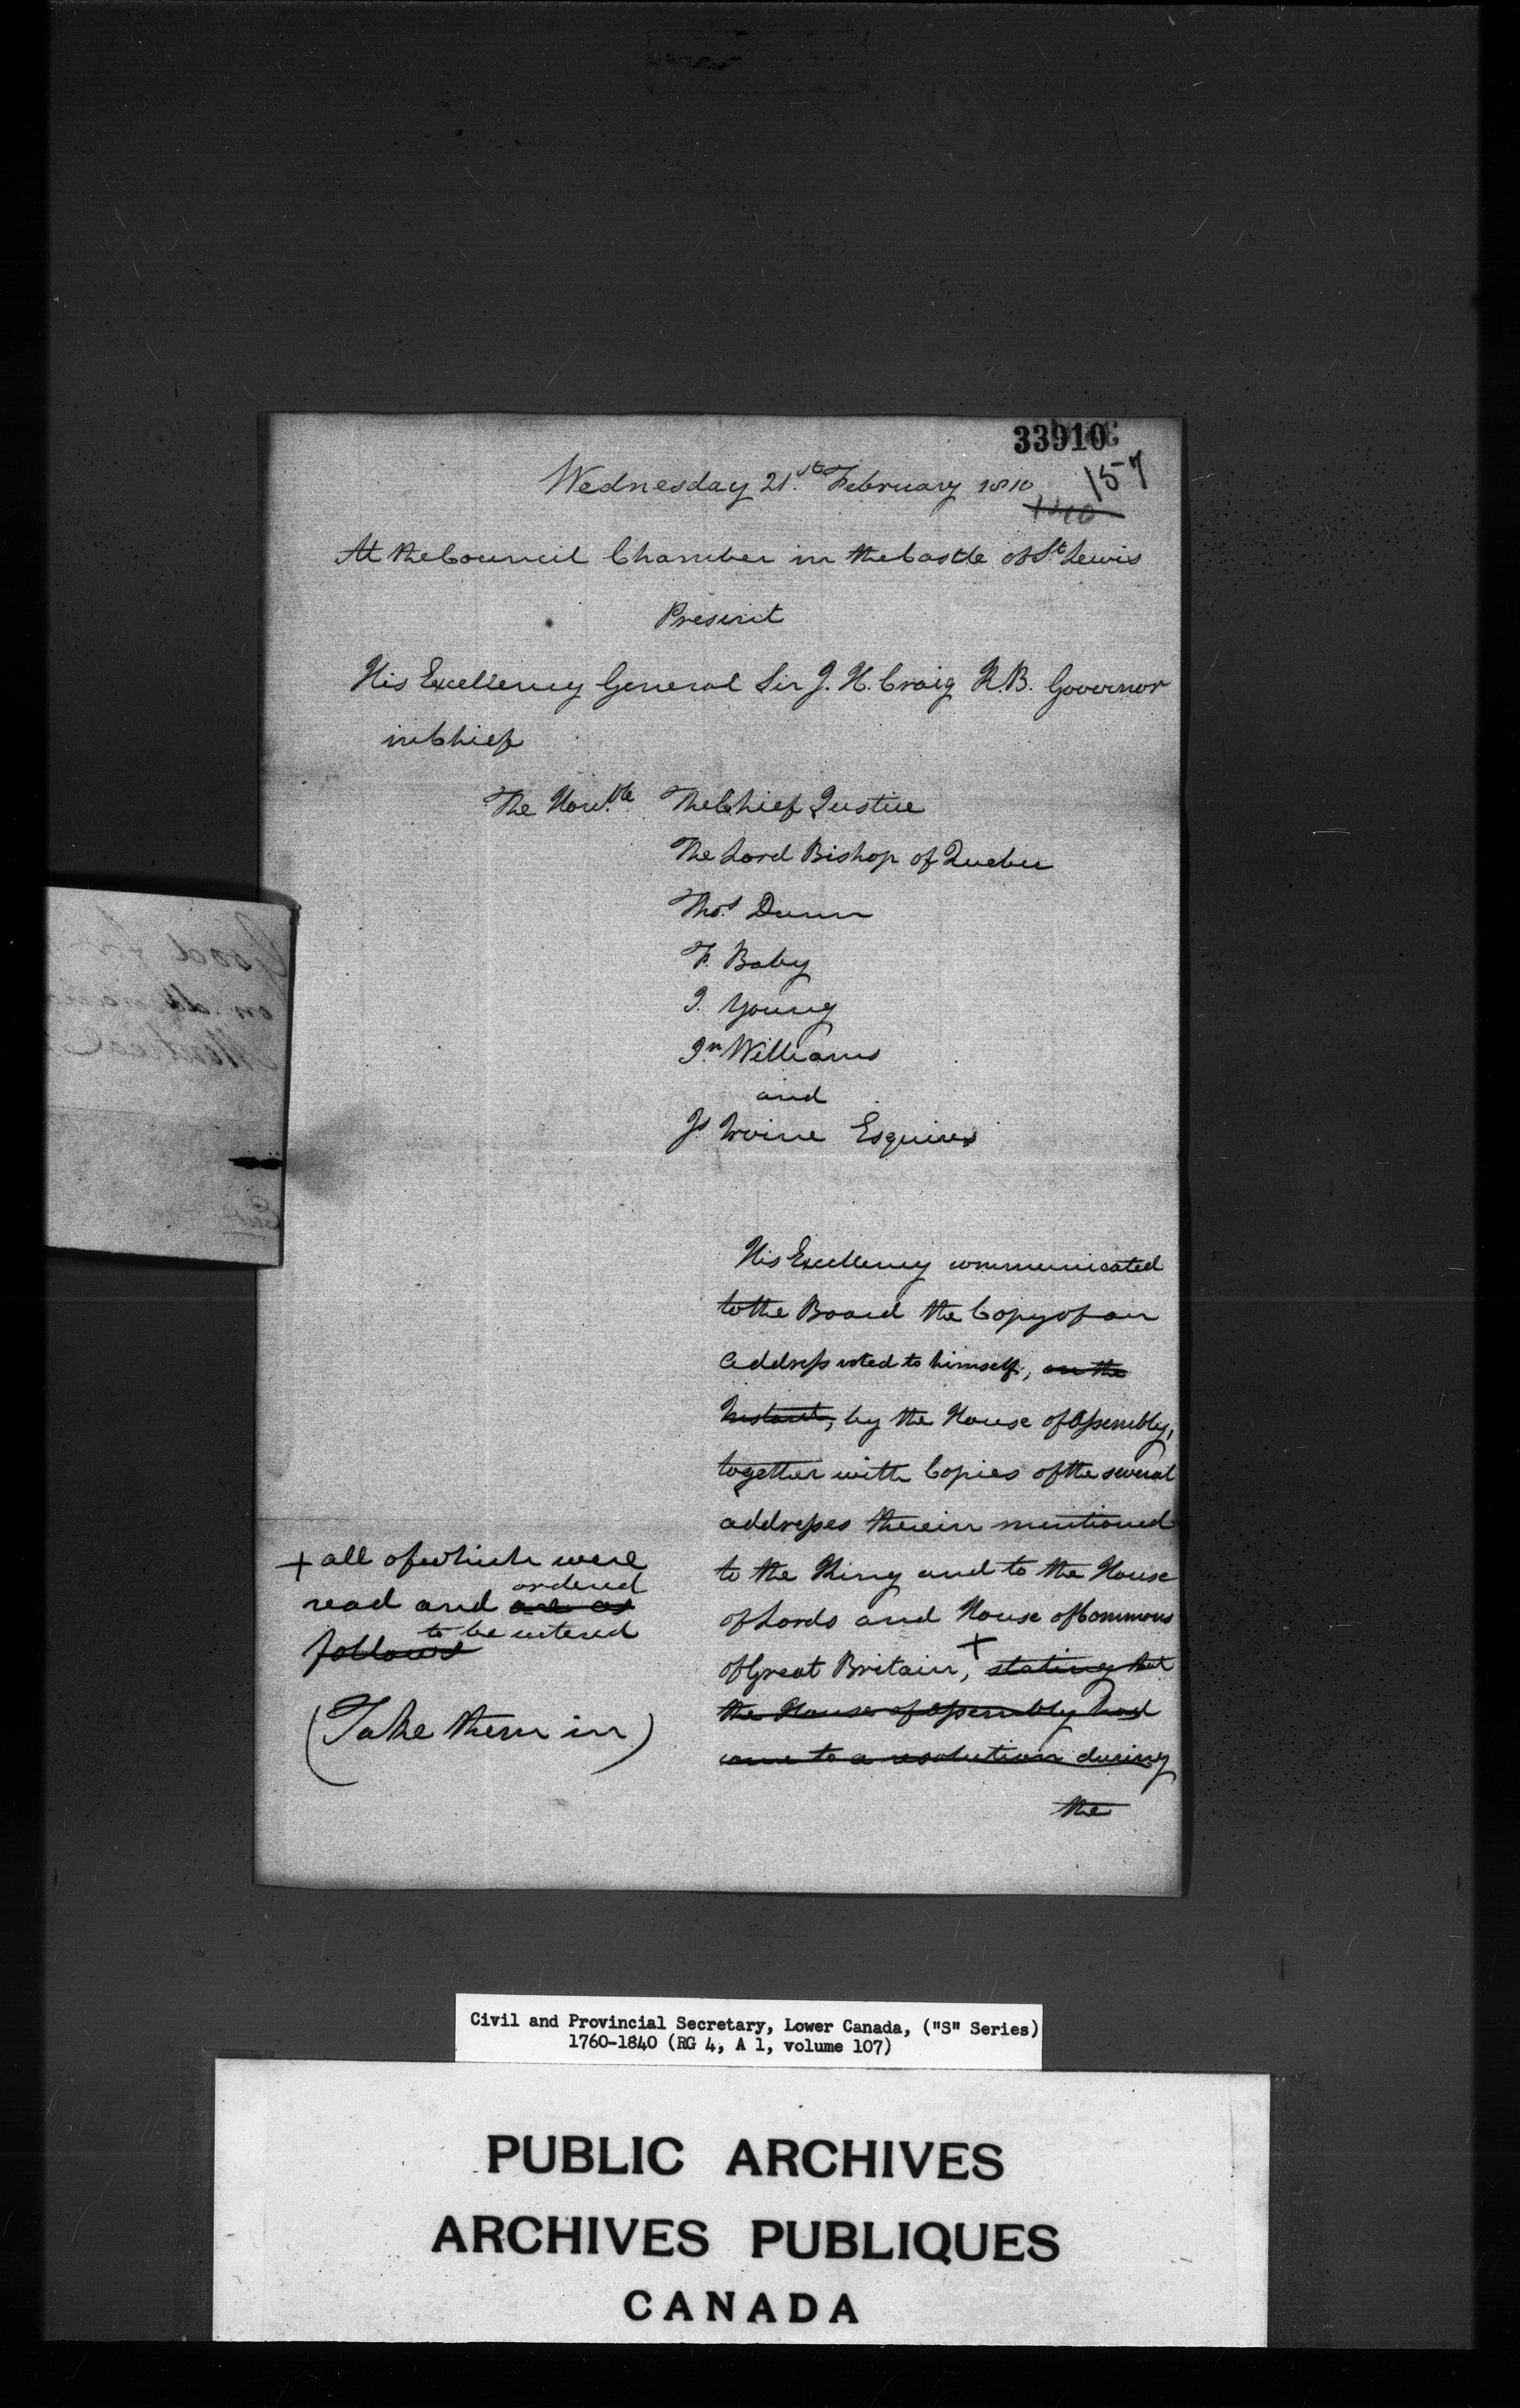 33910
157
Wednesday 21.st February 1810
At the Council Chamber in the Castle of St Lewis
Present
His Excellency General Sir J. H. Craig K.B. Governor
in Chief
The Honble The Chief Justice
The Lord Bishop of Quebec
Thos Dunn
F. Baby
J. Young
Jn Williams
and
Js Irvine Esquires
His Excellency communicated
to the Board the Copy of an
Address voted to himself, on the
Instant, by the House of Assembly,
together with Copies of the several
addresses therein mentioned
to the King and to the House
of Lords and House of Commons
of Great Britain, + stating that
the House of Assembly had
came to a resolution during
the
+ all of which were
ordered
read and are as
to be entered
follows
(Take them in)
Good for
Montreal
Civil and Provincial Secretary, Lower Canada, ("S" Series)
1760-1840 (RG 4, A 1, volume 107)
PUBLIC ARCHIVES
ARCHIVES PUBLIQUES
CANADA